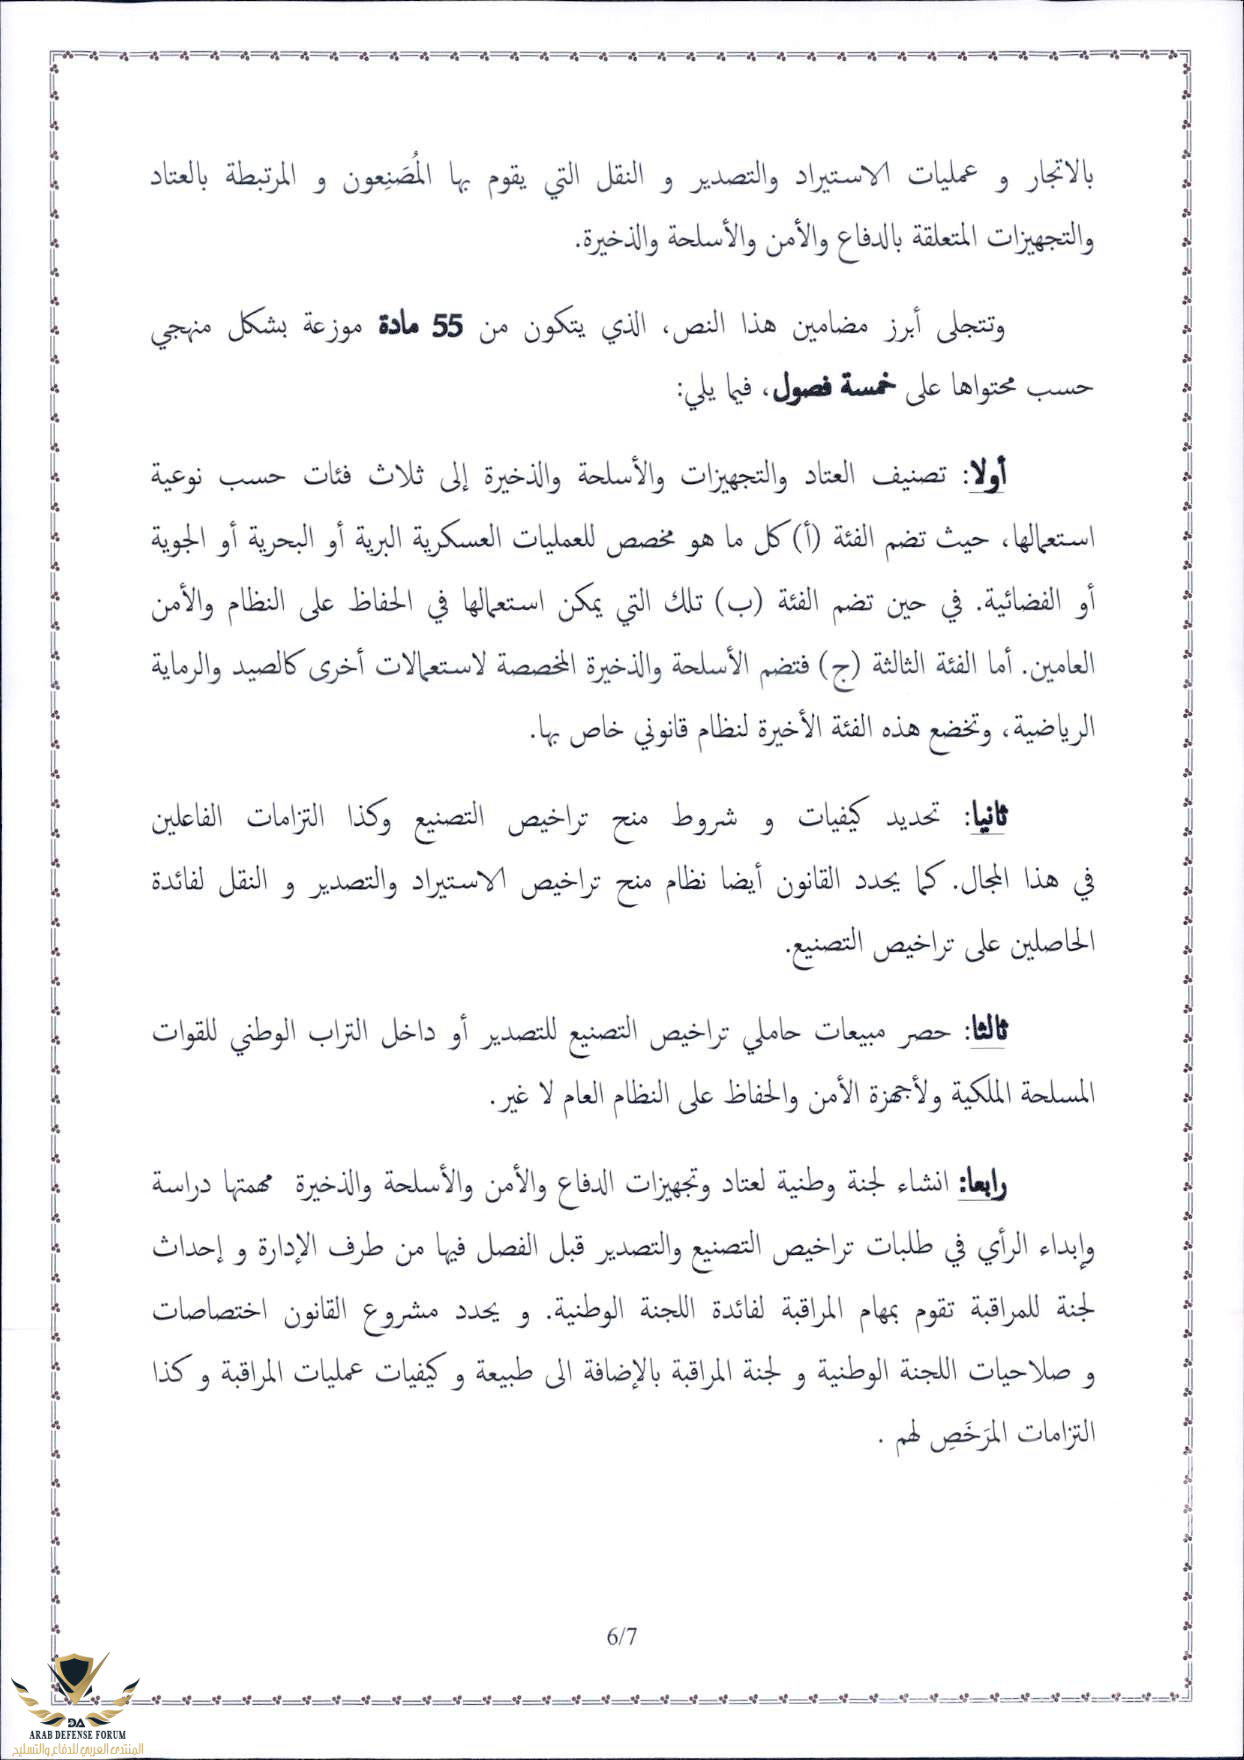 بالاتجار و عمليات الاستيراد والتصدير و النقل التي يقوم بها المُصَنِعون و المرتبطة بالعتاد
والتجهيزات المتعلقة بالدفاع والأمن والأسلحة والذخيرة.
وتتجلى أبرز مضامين هذا النص، الذي يتكون من 55 مادة موزعة بشكل منهجي
حسب محتواها على خمسة فصول، فيما يلي:
أولا: تصنيف العتاد والتجهيزات والأسلحة والذخيرة إلى ثلاث فئات حسب نوعية
استعمالها، حيث تضم الفئة (أ) كل ما هو مخصص للعمليات العسكرية البرية أو البحرية أو الجوية
أو الفضائية. في حين تضم الفئة (ب) تلك التي يمكن استعمالها في الحفاظ على النظام والأمن
العامين. أما الفئة الثالثة (ج) فتضم الأسلحة والذخيرة المخصصة لاستعمالات أخرى كالصيد والرماية
الرياضية، وتخضع هذه الفئة الأخيرة لنظام قانوني خاص بها.
ثانيا: تحديد كيفيات و شروط منح تراخيص التصنيع وكذا التزامات الفاعلين
في هذا المجال. كما يحدد القانون أيضا نظام منح تراخيص الاستيراد والتصدير و النقل لفائدة
الحاصلين على تراخيص التصنيع.
ثالثا: حصر مبيعات حاملي تراخيص التصنيع للتصدير أو داخل التراب الوطني للقوات
المسلحة الملكية ولأجهزة الأمن والحفاظ على النظام العام لا غير.
رابعا: انشاء لجنة وطنية لعتاد وتجهيزات الدفاع والأمن والأسلحة والذخيرة مهمتها دراسة
وإبداء الرأي في طلبات تراخيص التصنيع والتصدير قبل الفصل فيها من طرف الإدارة و إحداث
لجنة للمراقبة تقوم بمهام المراقبة لفائدة اللجنة الوطنية. و يحدد مشروع القانون اختصاصات
و صلاحيات اللجنة الوطنية و لجنة المراقبة بالإضافة الى طبيعة و كيفيات عمليات المراقبة و كذا
التزامات المرَخَصِ لهم .
6/7
DA
ARAB DEFENSE FORUM
المنتدى العربي للدفاع والتسليح